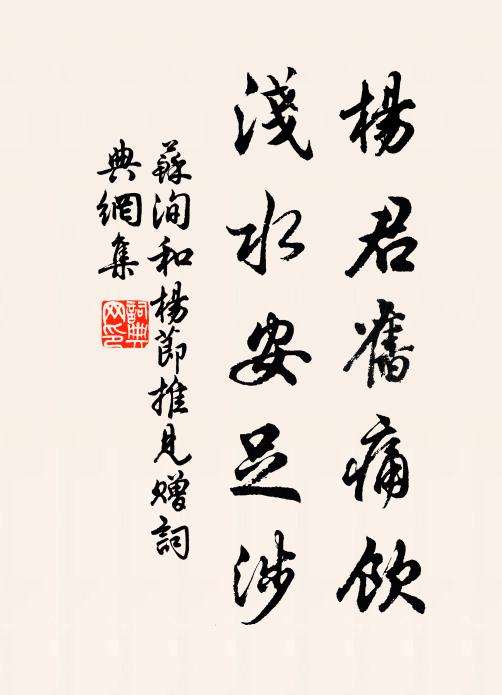 楊君舊痛飲
淺水安足涉
蘇洵和楊節推見贈詞
典網集
詞典網印